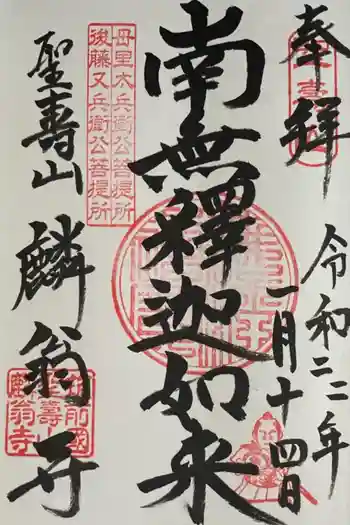 奉拝
令和二二年
一月十四日
南無釋迦如来
母里太兵衛公菩提所
後藤又兵衛公菩提所
聖壽山 麟翁寺
筑前國
聖壽山
麟翁寺